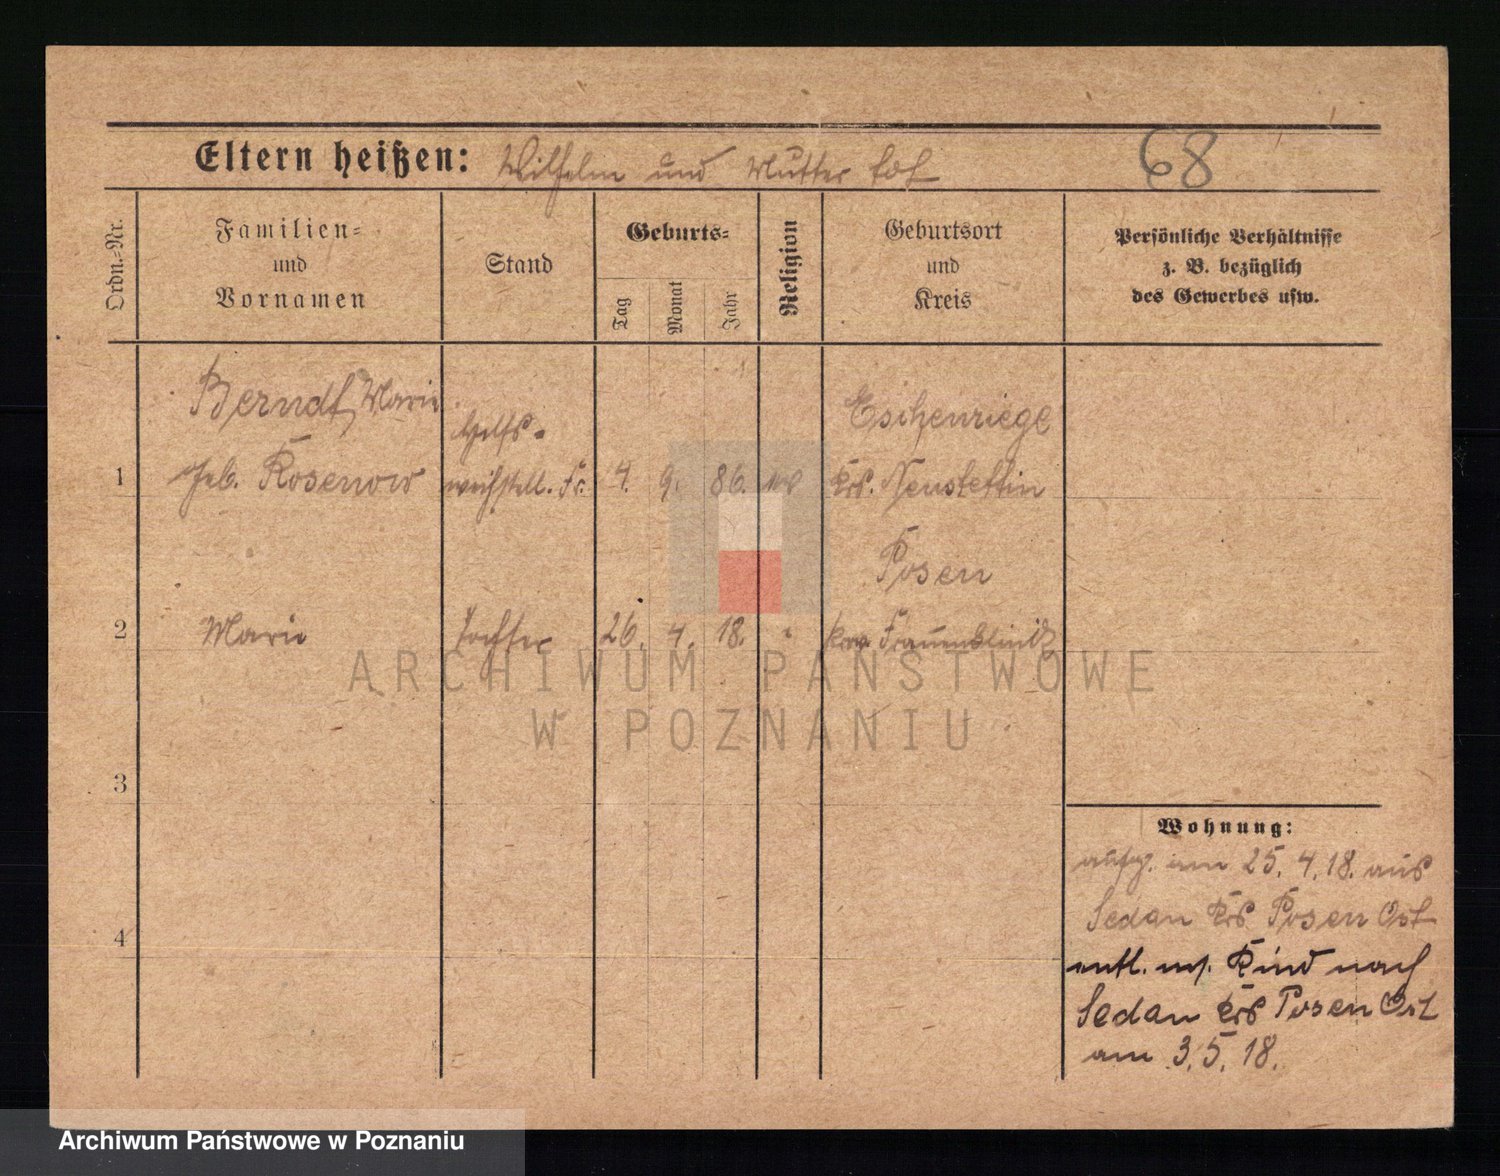 Eltern heißen: Wilhelm und Mutter tot
68
Ordn.-Nr.
Familien-
und
Vornamen
Stand
Geburts-
Tag
Monat
Jahr
Religion
Geburtsort
und
Kreis
Persönliche Verhältnisse
z. B. bezüglich
des Gewerbes usw.
Berndt, Marie
1 geb. Rosenow
Hilfs-
weichstell. Fr. 4. 9. 86. ev
Eschenriege
Krs. Neustettin
2 Marie Tochter 26. 4. 18. "
Posen
Prov. Frauenklinik
3
4
Wohnung:
aufg. am 25. 4. 18. aus
Sedan Krs Posen Ost
entl. m. Kind nach
Sedan Krs Posen Ost
am 3. 5. 18.
ARCHIWUM PAŃSTWOWE
W POZNANIU
Archiwum Państwowe w Poznaniu